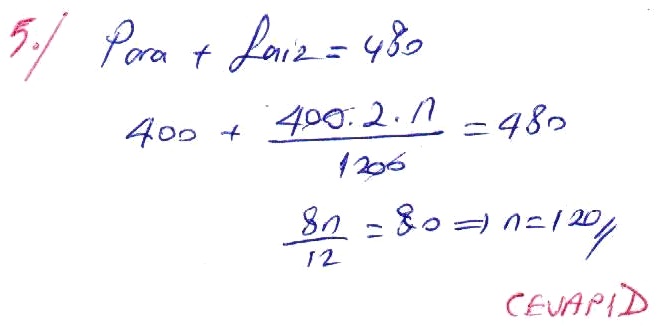 5./ Para + faiz = 480
400 + 400.2.n / 1200 = 480
8n / 12 = 80 => n = 120//
CEVAP D